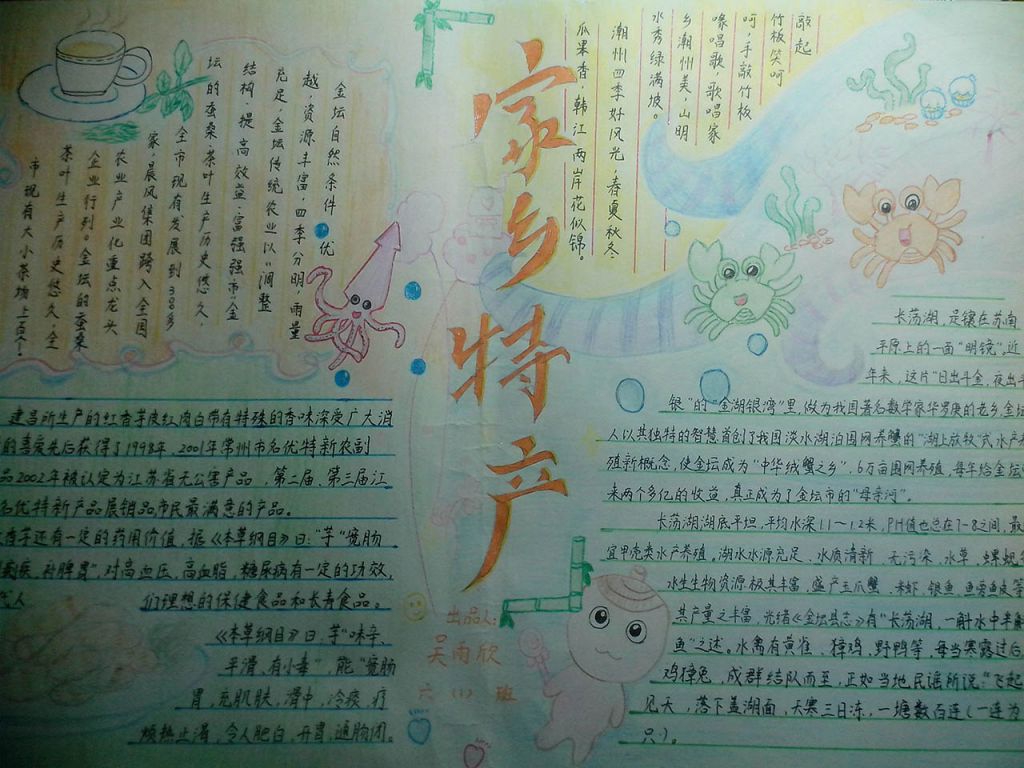 家乡特产
敲起
竹板笑呵
呵,手敲竹板
喙唱歌,歌唱家
乡潮州美,山明
水秀绿满坡。
潮州四季好风光,春夏秋冬
瓜果香,韩江两岸花似锦。
金坛自然条件优
越,资源丰富,四季分明,雨量
充足,金坛传统农业以"调整
结构,提高效益,富强强市"金
坛的蚕桑、茶叶生产历史悠久,
全市现有发展到38多
家,晨风集团跨入全国
农业产业化重点龙头
企业行列。金坛的蚕桑
茶叶生产历史悠久,全
市现有大小茶场上百个!
建昌所生产的红香芋皮红肉白带有特殊的香味深受广大消
的喜爱先后获得了1998年、2001年常州市名优特新农副
品2002年被认定为江苏省无公害产品,第二届、第三届江
名优特新产品展销品市民最满意的产品。
香芋还有一定的药用价值,据《本草纲目》曰:"芋"宽肠
补脾胃"对高血压,高血脂,糖尿病有一定的功效,
代人
们理想的保健食品和长寿食品。
《本草纲目》曰,芋"味辛、
平滑、有小毒",能"宽肠
胃,充肌肤,滑中,冷痰,疗
烦热止渴,令人肥白,开胃,通肠闭。
长荡湖,是镶在苏南
平原上的一面"明镜",近
年来,这片"日出斗金,夜出斗
银"的"金湖银湾"里,做为我国著名数学家华罗庚的老乡,金坛
人以其独特的智慧首创了我国淡水湖泊围网养蟹的"湖上放牧"式水产养
殖新概念,使金坛成为"中华绒蟹之乡",6万亩围网养殖,每年给金坛
来两个多亿的收益,真正成为了金坛市的"母亲河"。
长荡湖湖底平坦,平均水深1.1~1.2米,PH值也总在7-8之间,最
宜甲壳类水产养殖,湖水水源充足、水质清新、无污染,水草、螺蚬
水生生物资源极其丰富,盛产玉爪蟹、米虾、银鱼、鱼旁鱼皮等
其产量之丰富,光绪《金坛县志》有"长荡湖,一斛水中半斛
鱼"之述。水禽有黄雀、獐鸡、野鸭等,每当寒露过后
鸡獐兔,成群结队而至,正如当地民谣所说:"飞起
见天,落下盖湖面,大寒三日冻,一塘数百连(一连为
只)。
出品人:
吴雨欣
六(1)班